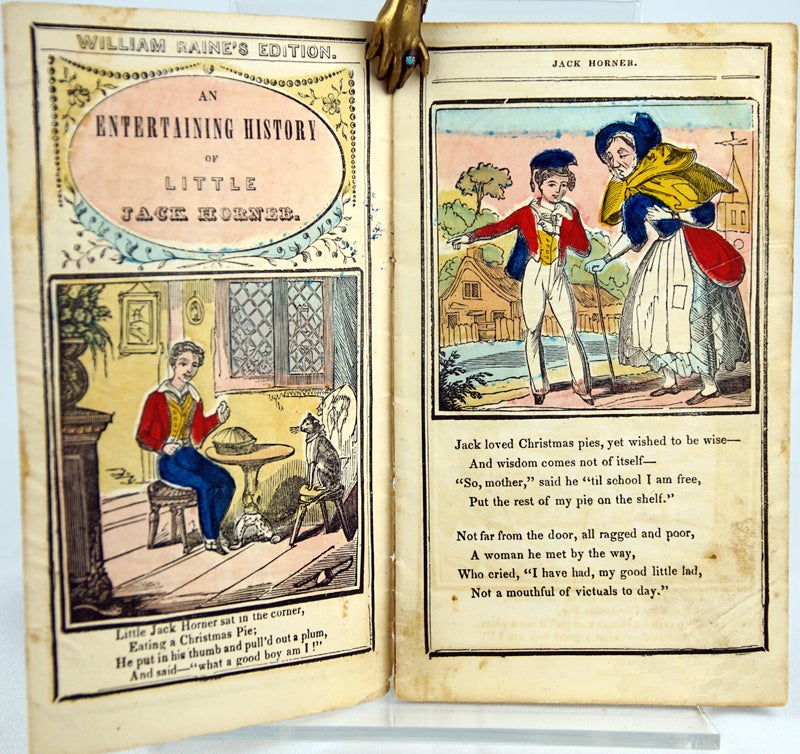 WILLIAM RAINE'S EDITION.
AN
ENTERTAINING HISTORY
OF
LITTLE
JACK HORNER.
Little Jack Horner sat in the corner,
Eating a Christmas Pie;
He put in his thumb and pull'd out a plum,
And said—"what a good boy am I!"
JACK HORNER.
Jack loved Christmas pies, yet wished to be wise—
And wisdom comes not of itself—
"So, mother," said he "til school I am free,
Put the rest of my pie on the shelf."
Not far from the door, all ragged and poor,
A woman he met by the way,
Who cried, "I have had, my good little lad,
Not a mouthful of victuals to day."